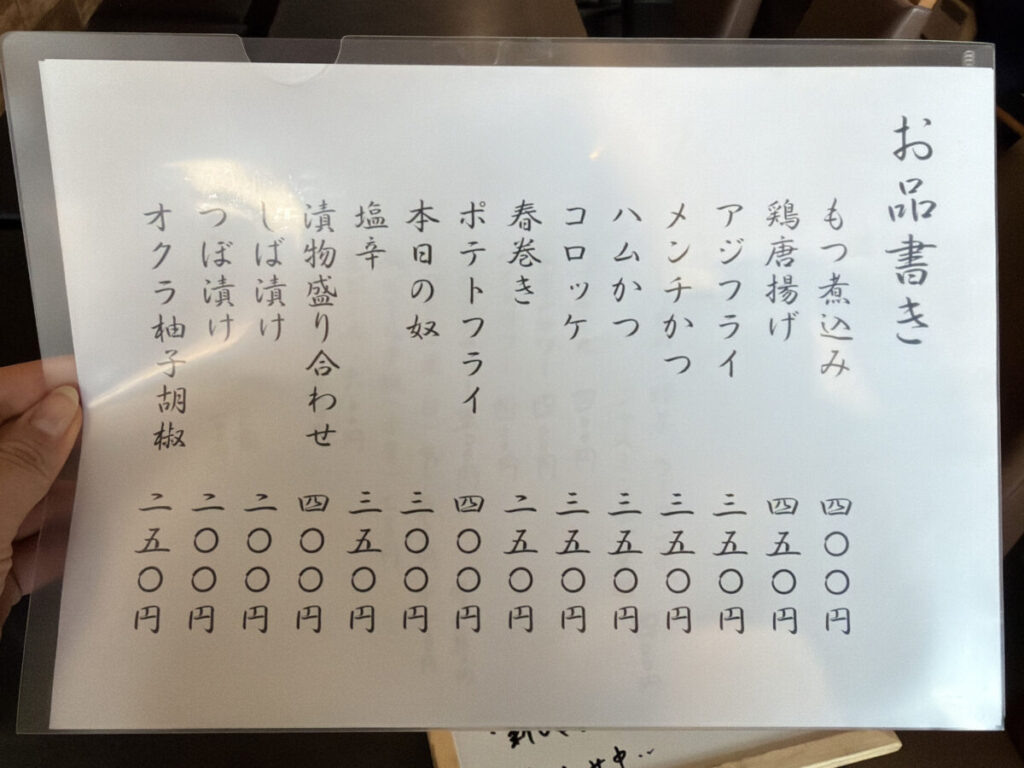 お品書き
もつ煮込み 四〇〇円
鶏唐揚げ 四五〇円
アジフライ 三五〇円
メンチかつ 三五〇円
ハムかつ 三五〇円
コロッケ 三五〇円
春巻き 二五〇円
ポテトフライ 四〇〇円
本日の奴 三〇〇円
塩辛 三五〇円
漬物盛り合わせ 四〇〇円
しば漬け 二〇〇円
つぼ漬け 二〇〇円
オクラ柚子胡椒 二五〇円